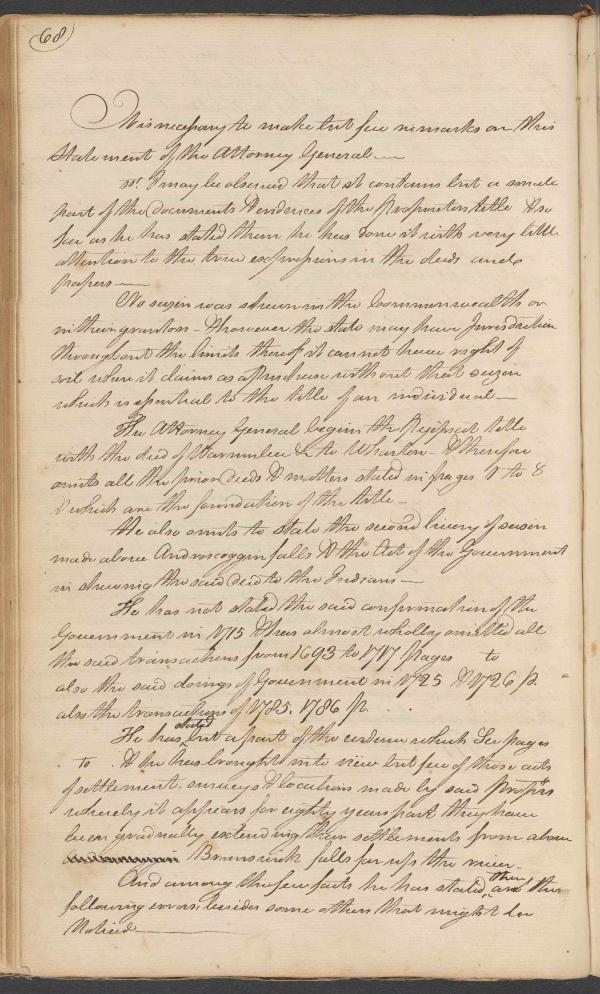 68
It is necessary to make but few remarks on this
Statement of the Attorney General —
1st. It may be observed that it contains but a small
part of the Documents & evidences of the Proprietors title & so
far as he has stated them he has done it with very little
attention to the true expressions in the deeds and
papers —
No seizin was shewn in the Commonwealth or
in their grantors — & however the state may have Jurisdiction
throughout the limits thereof it can not have right of
soil where it claims as a Purchase without that seizen
which is essential to the title of an individual —
The Attorney General begins the Pejipscot title
with the deed of Warumbee &c to Wharton — & therefore
omits all the prior deeds & matters stated in pages 1 to 8
& which are the foundation of the title —
He also omits to state the second livery of seisen
made above Androscoggin falls & the Act of the Government
in shewing the said deed to the Indians —
He has not stated the said confirmation of the
Government in 1715 & has almost wholly omitted all
the said transactions from 1693 to 1717 pages to
also the said doings of Government in 1725 & 1726 p.
also the transactions of 1785. 1786 p.
He has stated but a part of the evidence which See pages
to . & he has brought into view but few of those acts
of settlement, surveys & locations made by said Proprs
whereby it appears for eighty years past they have
been gradually extending their settlements from above
Brunswick falls far up the river —
And among the few facts he has stated, there are the
following errors, besides some others that might be
Noticed —